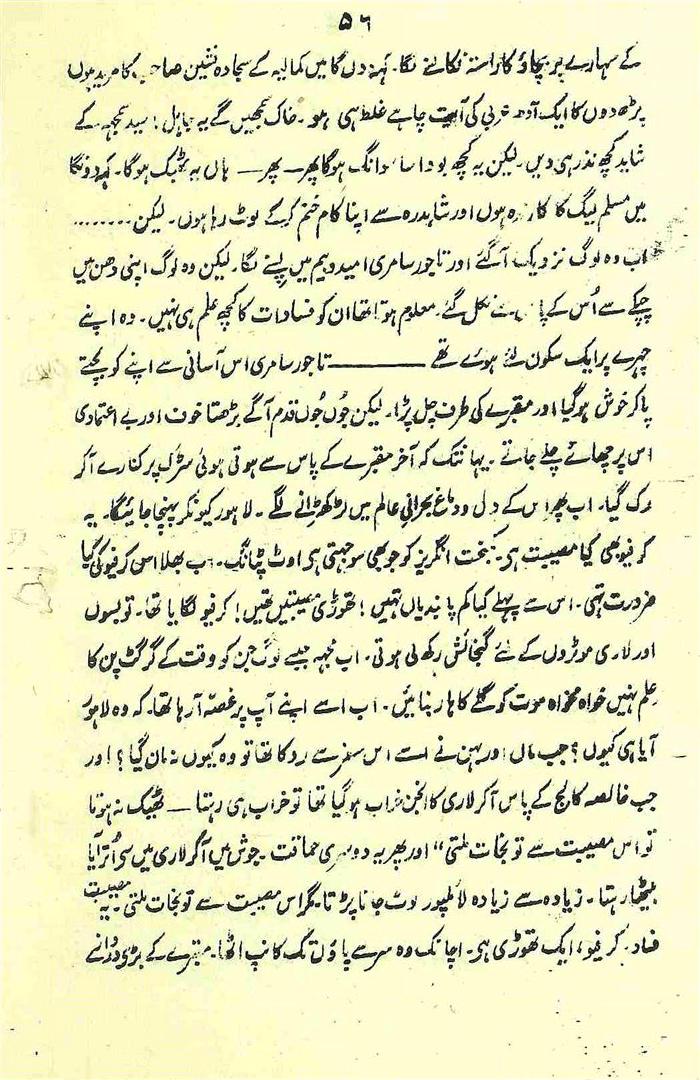 ۵۶
کے سہارے پر بچاؤ کا راستہ نکالنے لگا۔ کہہ دوں گا میں کمالیہ کے سجادہ نشین صاحب کا مرید ہوں
پڑھ دوں گا ایک آدھ عربی کی آیت چاہے غلط ہی ہو۔ خاک سمجھیں گے یہ جاہل! سید سمجھ کے
شاید کچھ نذر ہی دیں۔ لیکن یہ کچھ بودا سا سوانگ ہوگا پھر — پھر — ہاں یہ ٹھیک ہوگا۔ کہہ دونگا
میں مسلم لیگ کا کارندہ ہوں اور شاہدرہ سے اپنا کام ختم کر کے لوٹ رہا ہوں۔ لیکن........
اب وہ لوگ نزدیک آ گئے اور تاجور سامری امید و بیم میں پسنے لگا۔ لیکن وہ لوگ اپنی دھن میں
چپکے سے اُس کے پاس سے نکل گئے۔ معلوم ہوتا تھا ان کو فسادات کا کچھ علم ہی نہیں۔ وہ اپنے
چہرے پر ایک سکون لئے ہوئے تھے ———— تاجور سامری اس آسانی سے اپنے کو بچتے
پا کر خوش ہو گیا اور مقبرے کی طرف چل پڑا۔ لیکن جُوں جُوں قدم آگے بڑھتا خوف اور بے اعتمادی
اس پر چھائے چلے جاتے۔ یہانتک کہ آخر مقبرے کے پاس سے ہوتی ہوئی سڑک پر کنارے آ کر
رک گیا۔ اب پھر اس کے دل و دماغ بحرانی عالم میں لڑکھڑانے لگے۔ لاہور کیونکر پہنچا جائیگا۔ یہ
کرفیو بھی کیا مصیبت ہی۔ کمبخت انگریز کو جو بھی سوجھتی ہی اوٹ پٹانگ۔ اب بھلا اس کرفیو کی کیا
ضرورت تھی۔ اس سے پہلے کیا کم پابندیاں تھیں! تھوڑی مصیبتیں تھیں! کرفیو لگایا تھا۔ تو بسوں
اور لاری موٹروں کے لئے گنجائش رکھ لی ہوتی۔ اب مجھ جیسے لوگ جن کو وقت کے گرگٹ پن کا
علم نہیں خواہ مخواہ موت کو گلے کا ہار بنائیں۔ اب اسے اپنے آپ پر غصہ آ رہا تھا۔ کہ وہ لاہور
آیا ہی کیوں؟ جب ماں اور بہن نے اسے اس سفر سے روکا تھا تو وہ کیوں نہ مان گیا؟ اور
جب خالصہ کالج کے پاس آ کر لاری کا انجن خراب ہو گیا تھا تو خراب ہی رہتا — ٹھیک نہ ہوتا
تو اس مصیبت سے تو نجات ملتی“ اور پھر یہ دوسری حماقت۔ جوش میں آ کر لاری میں سے اُتر آیا
بیٹھا رہتا۔ زیادہ سے زیادہ لائلپور لوٹ جانا پڑتا۔ مگر اس مصیبت سے تو نجات ملتی۔ یہ مصیبت
فساد، کرفیو، ایک تھوڑی ہی۔ اچانک وہ سر سے پاؤں تک کانپ اٹھا۔ مقبرے کے بڑی دروانے